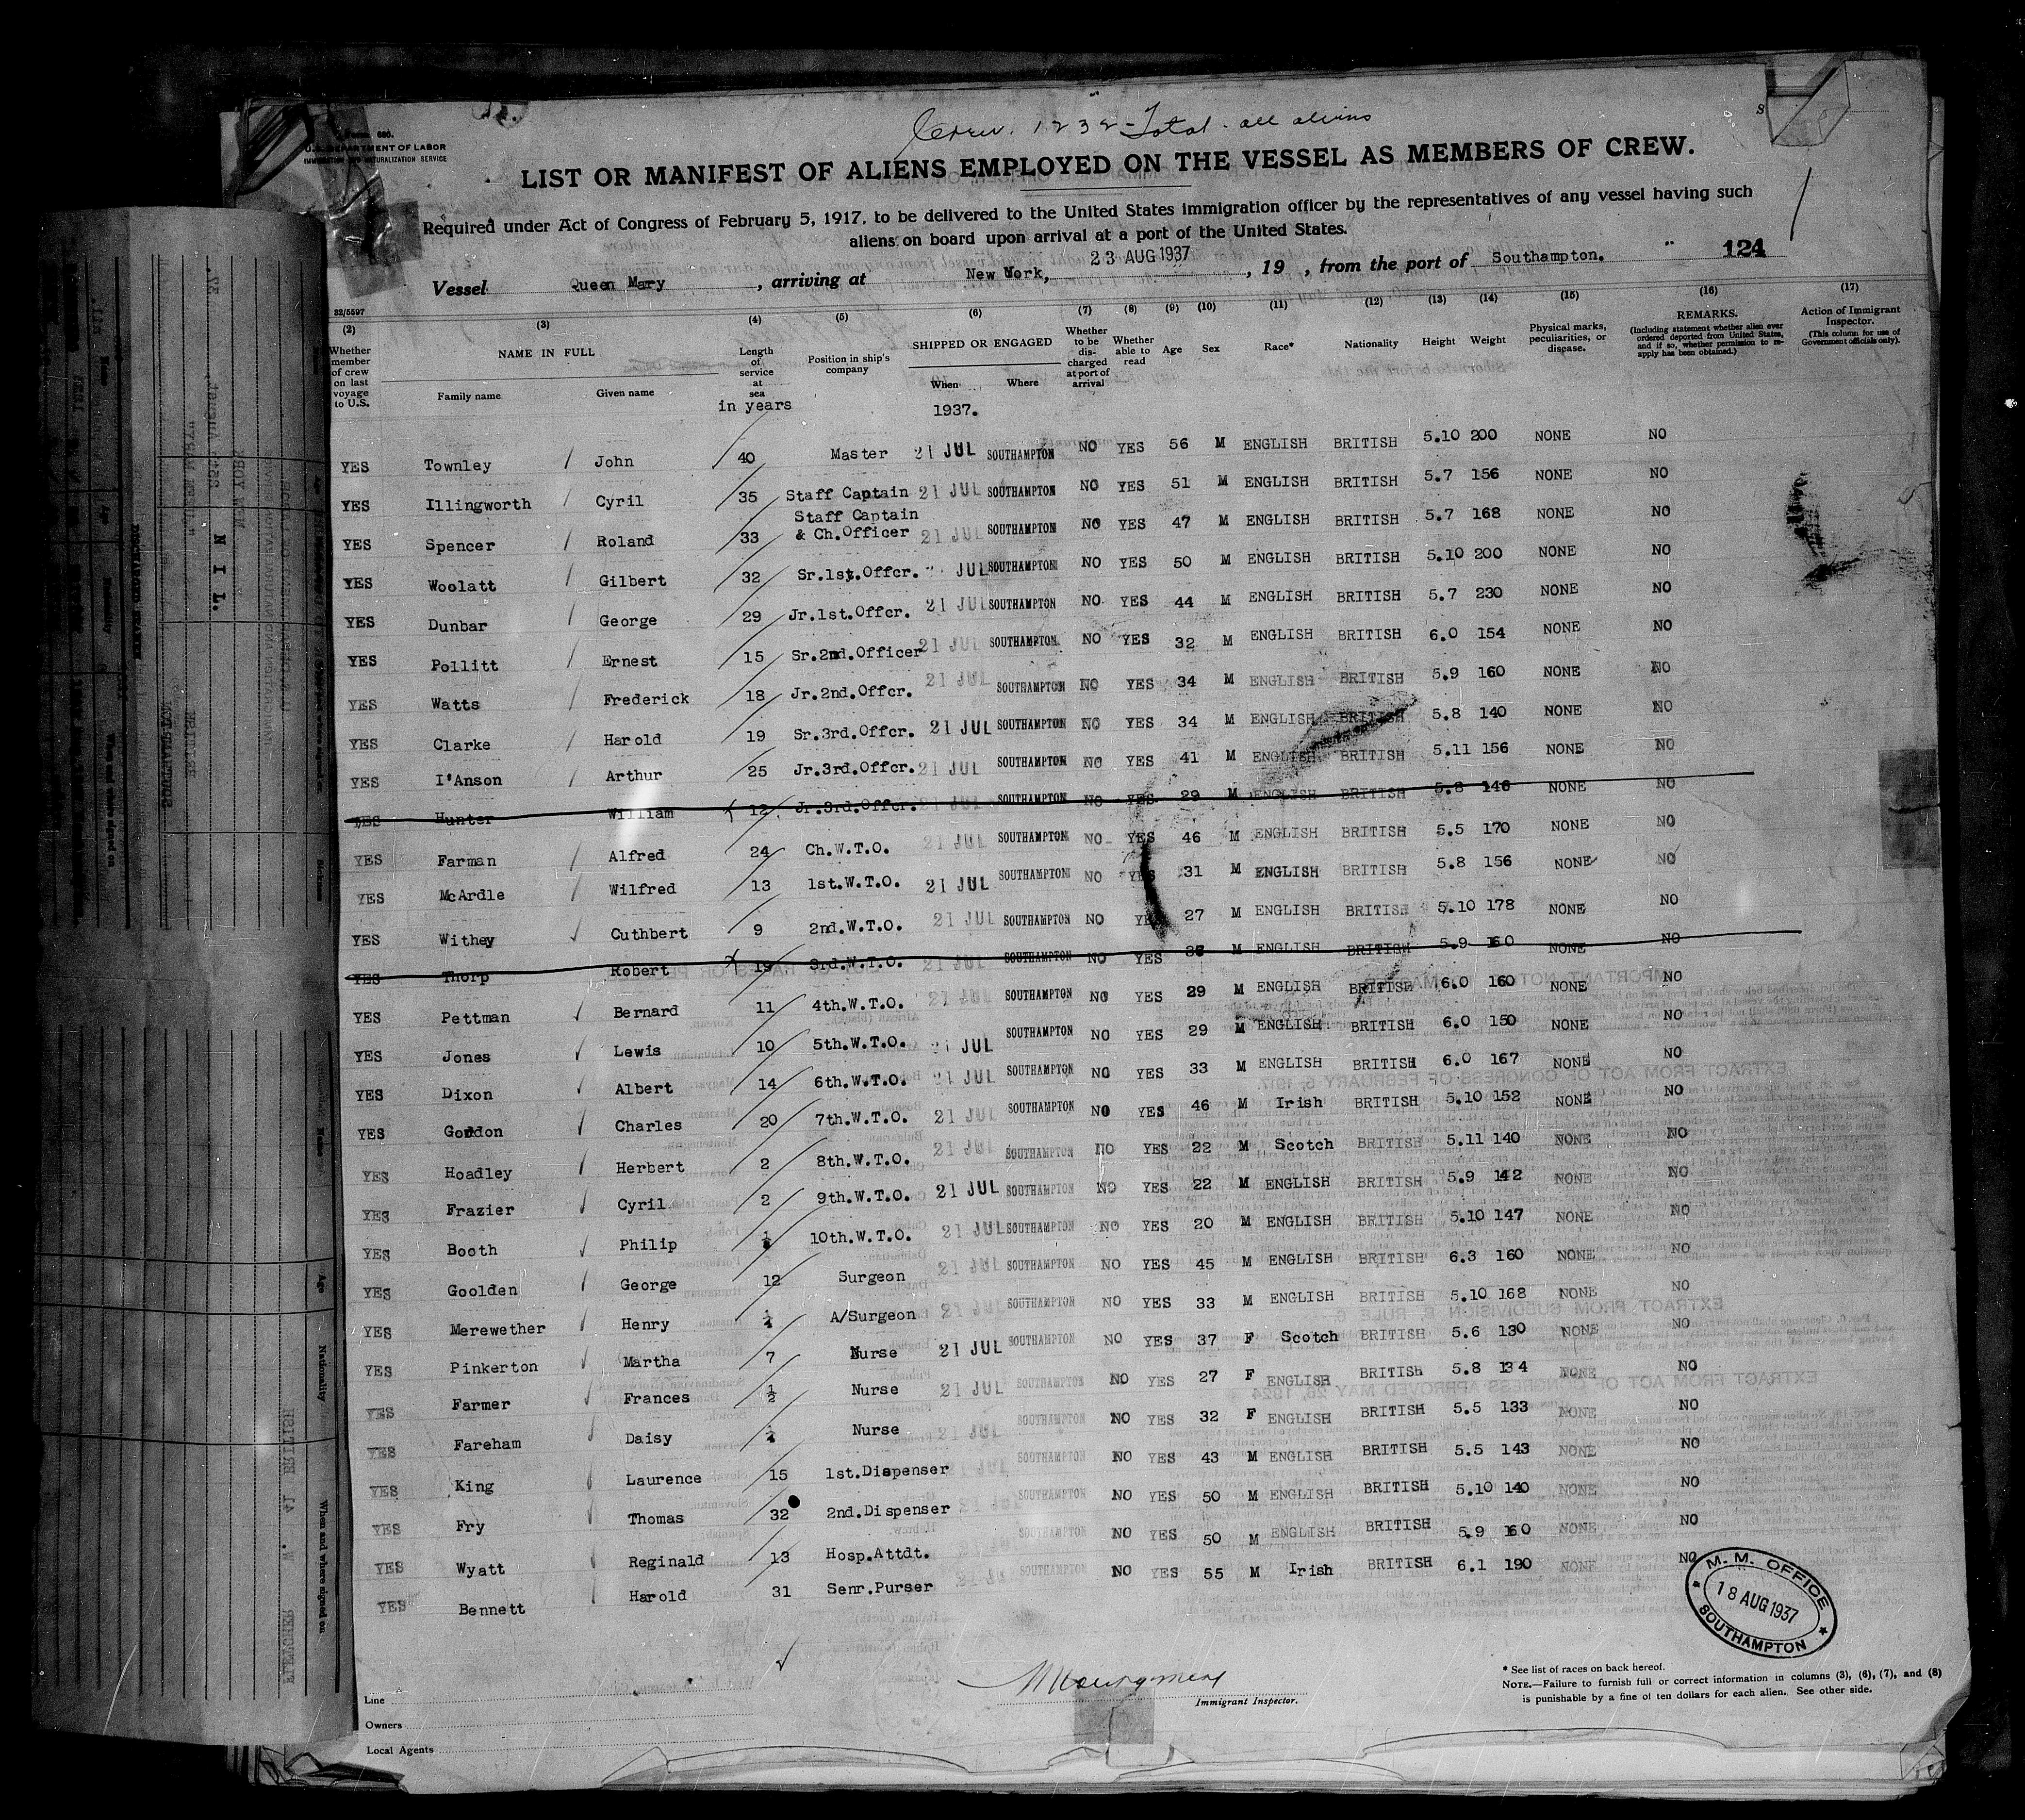 Form 680.
U.S. DEPARTMENT OF LABOR
IMMIGRATION AND NATURALIZATION SERVICE
Crew. 1232 - Total - all aliens
LIST OR MANIFEST OF ALIENS EMPLOYED ON THE VESSEL AS MEMBERS OF CREW.
Required under Act of Congress of February 5, 1917, to be delivered to the United States immigration officer by the representatives of any vessel having such
aliens on board upon arrival at a port of the United States.
Vessel Queen Mary, arriving at New York, 23 AUG 1937, 19 , from the port of Southampton. 124
32/5597
(2) (3) (4) (5) (6) (7) (8) (9) (10) (11) (12) (13) (14) (15) (16) (17)
Whether member of crew on last voyage to U.S. NAME IN FULL Family name Given name Length of service at sea in years Position in ship's company SHIPPED OR ENGAGED When Where 1937. Whether to be discharged at port of arrival Whether able to read Age Sex Race* Nationality Height Weight Physical marks, peculiarities, or disease. REMARKS. (Including statement whether alien ever ordered deported from United States, and if so, whether permission to re-apply has been obtained.) Action of Immigrant Inspector. (This column for use of Government officials only).
YES Townley John 40 Master 21 JUL SOUTHAMPTON NO YES 56 M ENGLISH BRITISH 5.10 200 NONE NO
YES Illingworth Cyril 35 Staff Captain 21 JUL SOUTHAMPTON NO YES 51 M ENGLISH BRITISH 5.7 156 NONE NO
YES Spencer Roland 33 Staff Captain & Ch.Officer 21 JUL SOUTHAMPTON NO YES 47 M ENGLISH BRITISH 5.7 168 NONE NO
YES Woolatt Gilbert 32 Sr.1st.Offcr. JUL SOUTHAMPTON NO YES 50 M ENGLISH BRITISH 5.10 200 NONE NO
YES Dunbar George 29 Jr.1st.Offcr. 21 JUL SOUTHAMPTON NO YES 44 M ENGLISH BRITISH 5.7 230 NONE NO
YES Pollitt Ernest 15 Sr.2nd.Officer 21 JUL SOUTHAMPTON NO YES 32 M ENGLISH BRITISH 6.0 154 NONE NO
YES Watts Frederick 18 Jr.2nd.Offcr. 21 JUL SOUTHAMPTON NO YES 34 M ENGLISH BRITISH 5.9 160 NONE NO
YES Clarke Harold 19 Sr.3rd.Offcr. 21 JUL SOUTHAMPTON NO YES 34 M ENGLISH BRITISH 5.8 140 NONE NO
YES I'Anson Arthur 25 Jr.3rd.Offcr. 21 JUL SOUTHAMPTON NO YES 41 M ENGLISH BRITISH 5.11 156 NONE NO
YES Hunter William 12 Jr.3rd.Offcr. 21 JUL SOUTHAMPTON NO YES 29 M ENGLISH BRITISH 5.8 146 NONE NO
YES Farman Alfred 24 Ch.W.T.O. 21 JUL SOUTHAMPTON NO YES 46 M ENGLISH BRITISH 5.5 170 NONE NO
YES McArdle Wilfred 13 1st.W.T.O. 21 JUL SOUTHAMPTON NO YES 31 M ENGLISH BRITISH 5.8 156 NONE NO
YES Withey Cuthbert 9 2nd.W.T.O. 21 JUL SOUTHAMPTON NO YES 27 M ENGLISH BRITISH 5.10 178 NONE NO
YES Thorp Robert 19 3rd.W.T.O. 21 JUL SOUTHAMPTON NO YES M ENGLISH BRITISH 5.9 160 NONE NO
YES Pettman Bernard 11 4th.W.T.O. 21 JUL SOUTHAMPTON NO YES 29 M ENGLISH BRITISH 6.0 160 NONE NO
YES Jones Lewis 10 5th.W.T.O. 21 JUL SOUTHAMPTON NO YES 29 M ENGLISH BRITISH 6.0 150 NONE NO
YES Dixon Albert 14 6th.W.T.O. 21 JUL SOUTHAMPTON NO YES 33 M ENGLISH BRITISH 6.0 167 NONE NO
YES Gordon Charles 20 7th.W.T.O. 21 JUL SOUTHAMPTON NO YES 46 M Irish BRITISH 5.10 152 NONE NO
YES Hoadley Herbert 2 8th.W.T.O. 21 JUL SOUTHAMPTON NO YES 22 M Scotch BRITISH 5.11 140 NONE NO
YES Frazier Cyril 2 9th.W.T.O. 21 JUL SOUTHAMPTON NO YES 22 M ENGLISH BRITISH 5.9 142 NONE NO
YES Booth Philip 10th.W.T.O. 21 JUL SOUTHAMPTON NO YES 20 M ENGLISH BRITISH 5.10 147 NONE NO
YES Goolden George 12 Surgeon 21 JUL SOUTHAMPTON NO YES 45 M ENGLISH BRITISH 6.3 160 NONE NO
YES Merewether Henry ¼ A/Surgeon 21 JUL SOUTHAMPTON NO YES 33 M ENGLISH BRITISH 5.10 168 NONE NO
YES Pinkerton Martha 7 Nurse 21 JUL SOUTHAMPTON NO YES 37 F Scotch BRITISH 5.6 130 NONE NO
YES Farmer Frances ½ Nurse 21 JUL SOUTHAMPTON NO YES 27 F ENGLISH BRITISH 5.8 134 NONE NO
YES Fareham Daisy ¼ Nurse 21 JUL SOUTHAMPTON NO YES 32 F ENGLISH BRITISH 5.5 133 NONE NO
YES King Laurence 15 1st.Dispenser 21 JUL SOUTHAMPTON NO YES 43 M ENGLISH BRITISH 5.5 143 NONE NO
YES Fry Thomas 32 2nd.Dispenser 21 JUL SOUTHAMPTON NO YES 50 M ENGLISH BRITISH 5.10 140 NONE NO
YES Wyatt Reginald 13 Hosp.Attdt. SOUTHAMPTON NO YES 50 M ENGLISH BRITISH 5.9 160 NONE NO
YES Bennett Harold 31 Senr.Purser 21 JUL SOUTHAMPTON NO YES 55 M Irish BRITISH 6.1 190 NONE NO
M. M. OFFICE
18 AUG 1937
SOUTHAMPTON
Line
Owners
Local Agents
Immigrant Inspector.
* See list of races on back hereof.
NOTE.—Failure to furnish full or correct information in columns (3), (6), (7), and (8)
is punishable by a fine of ten dollars for each alien. See other side.